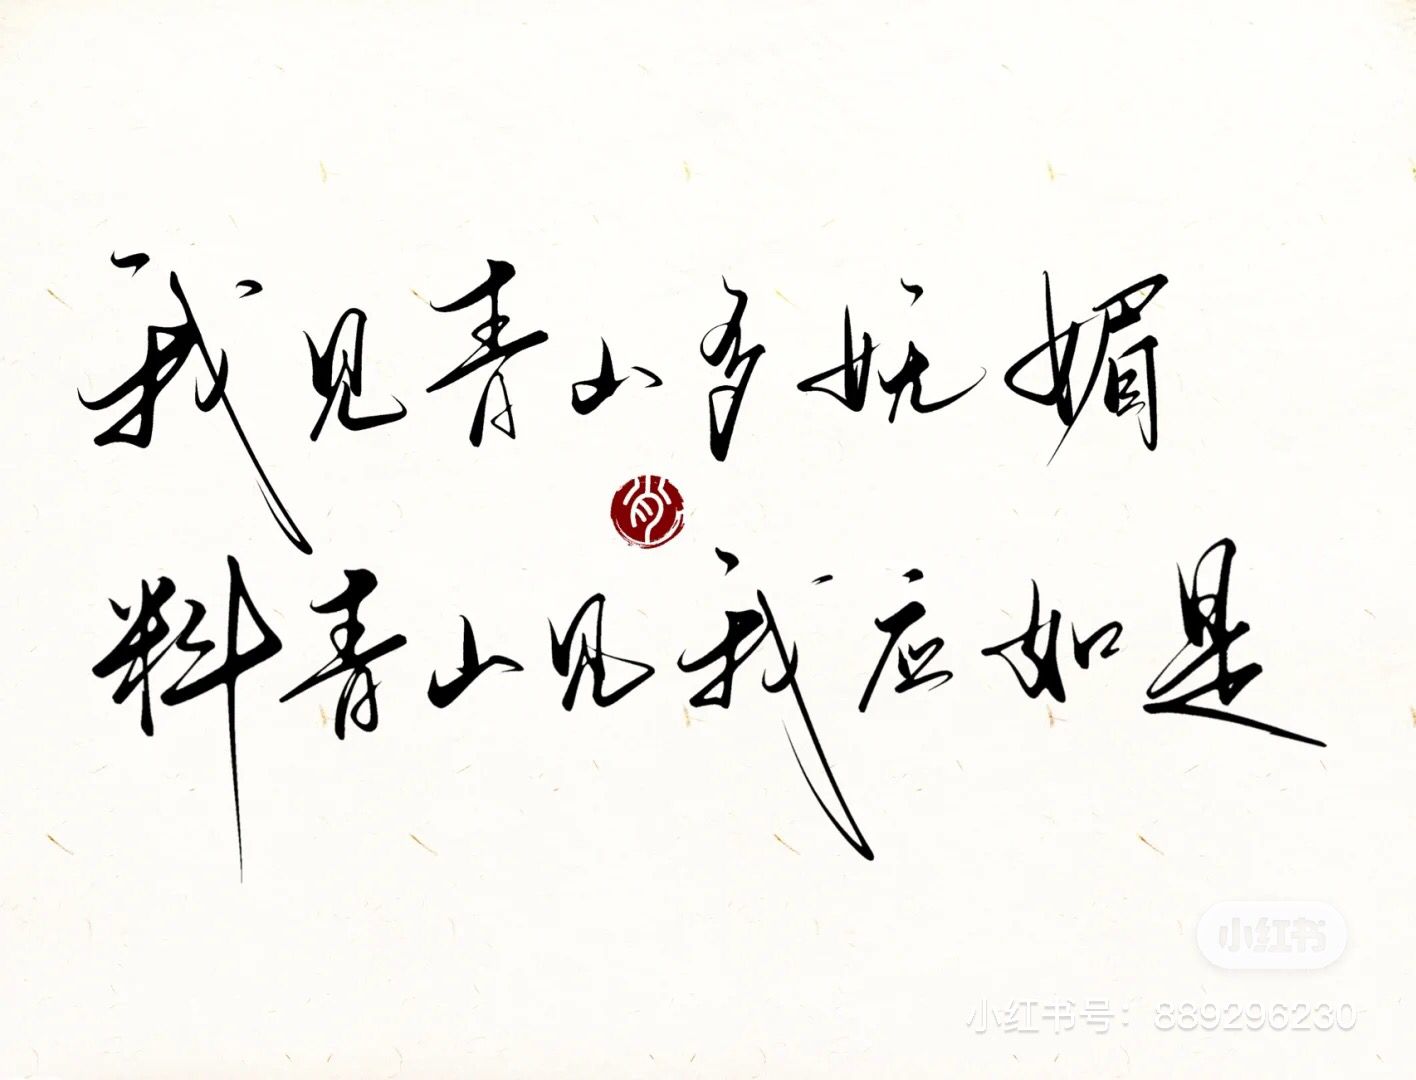 我见青山多妩媚
料青山见我应如是
小红书
小红书号：889296230